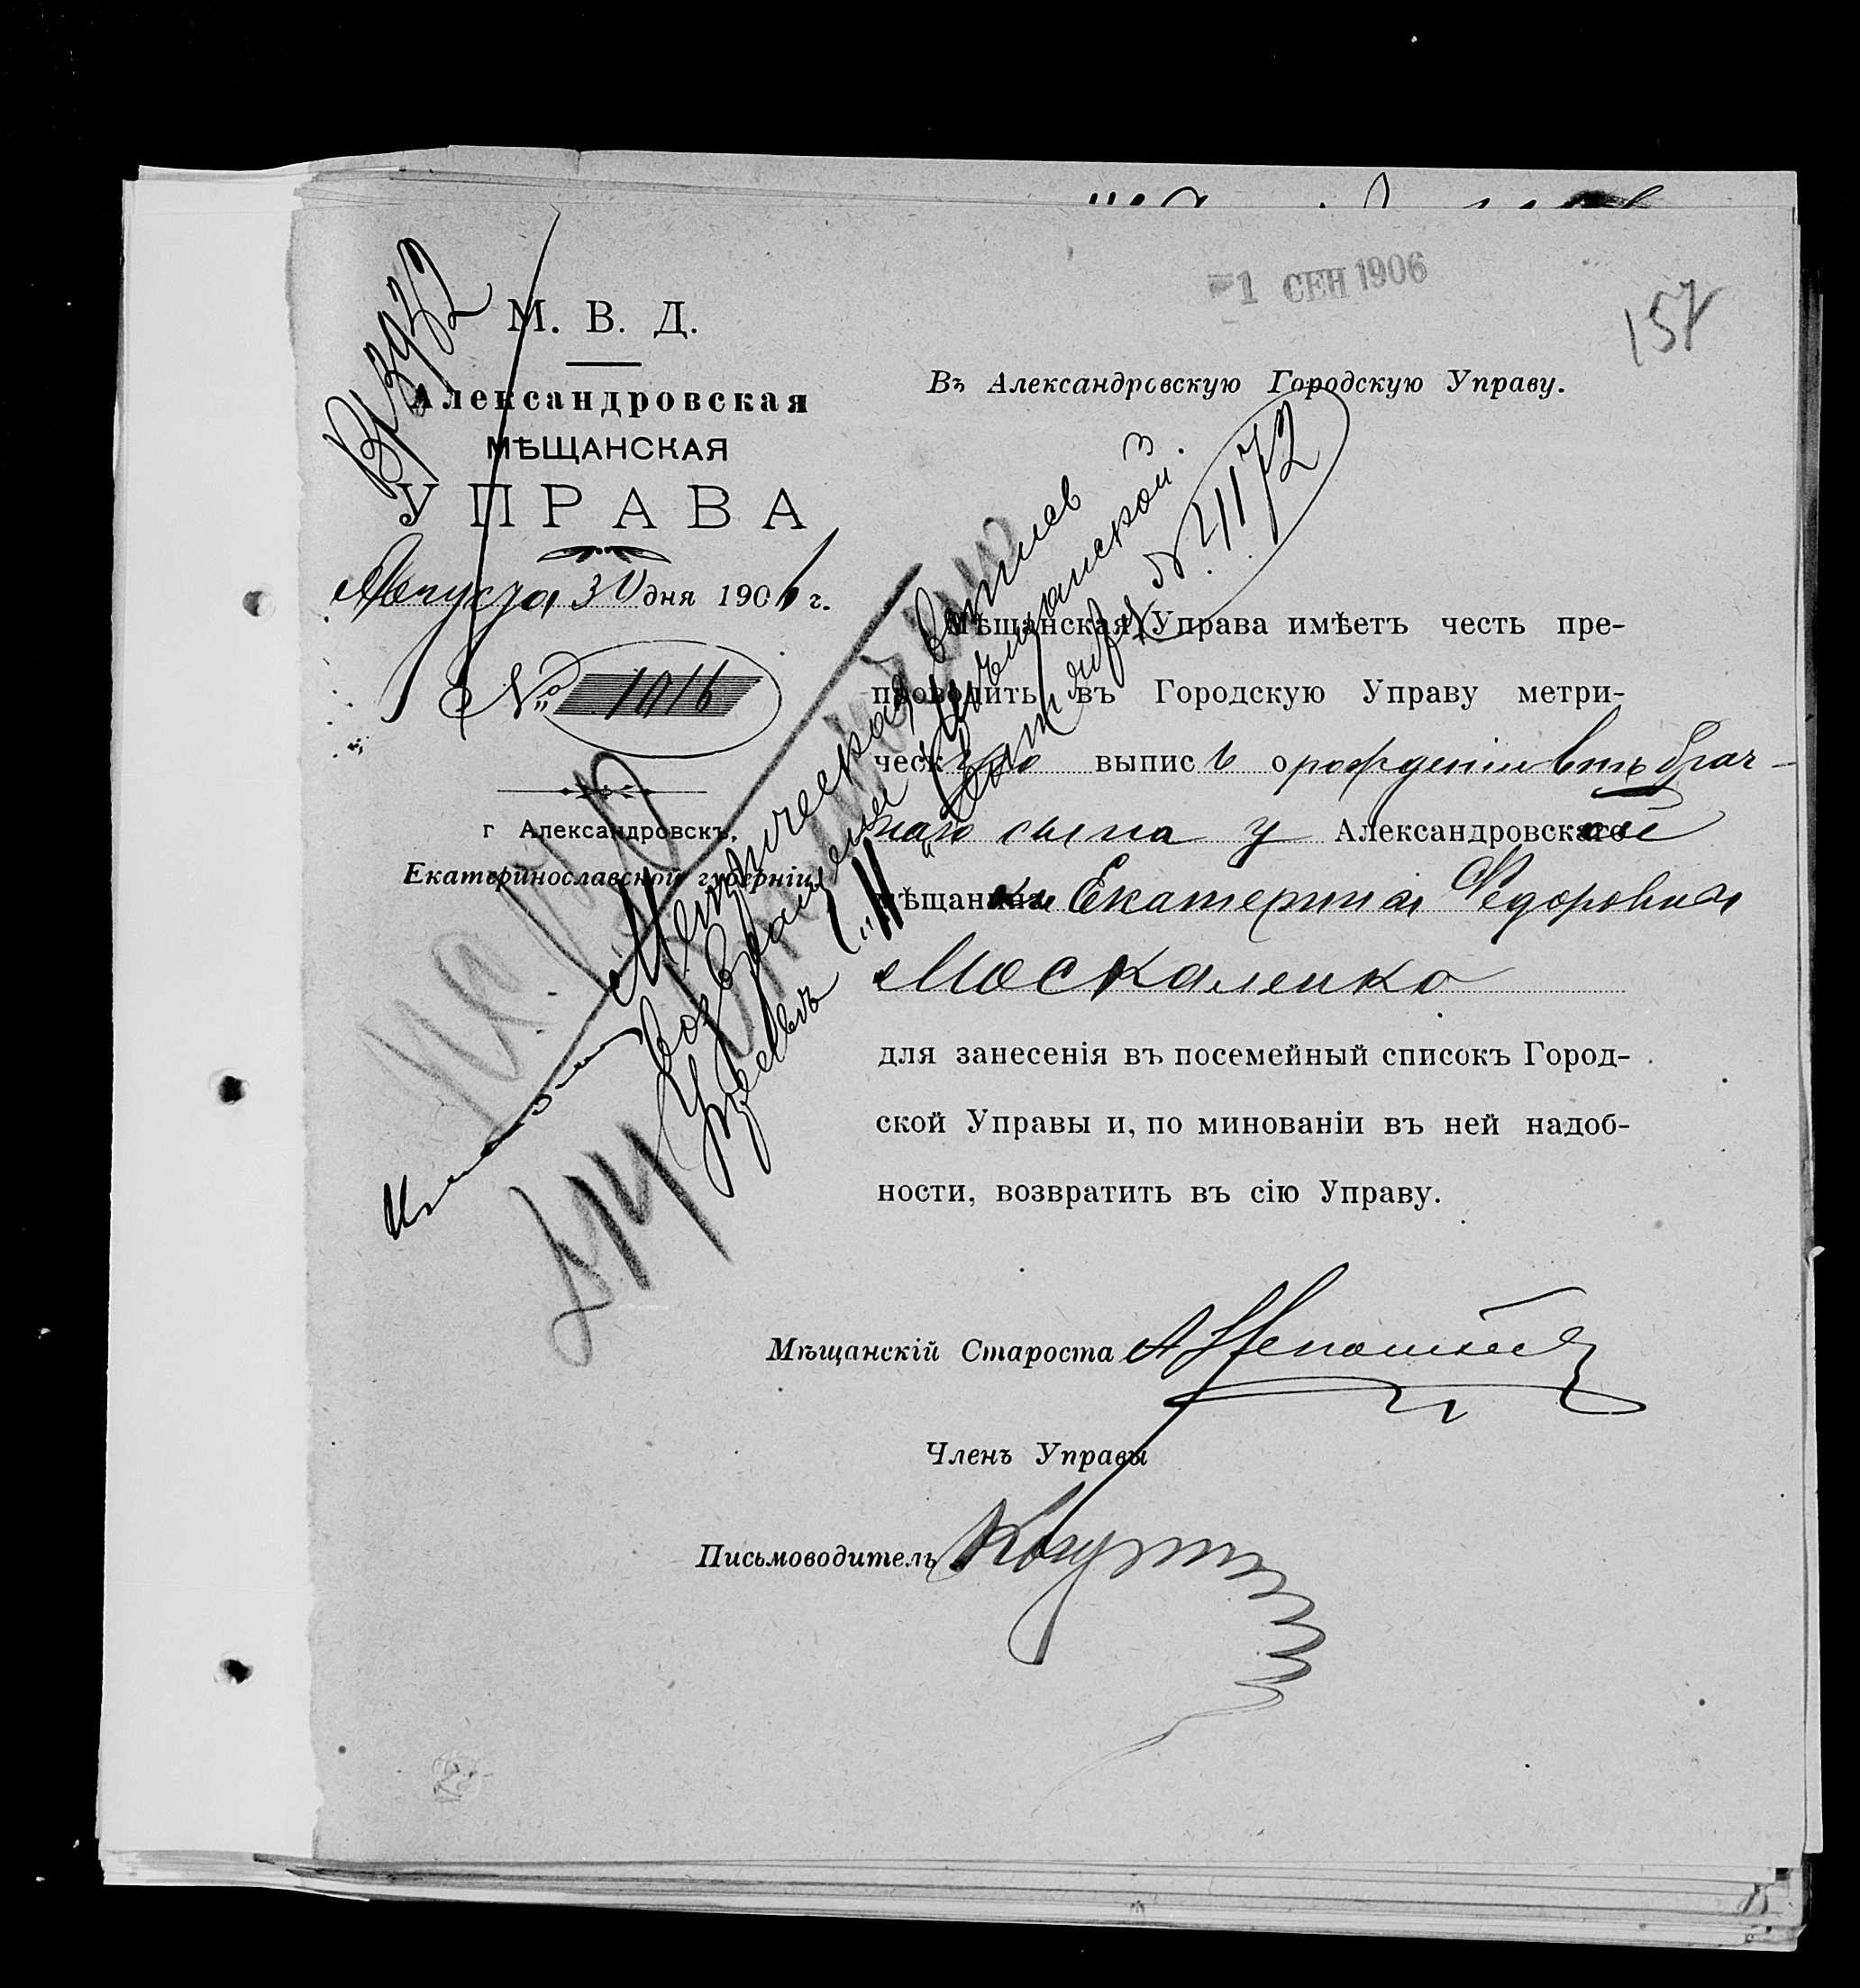 1 СЕН 1906
157
Вр 3932
М. В. Д.
Александровская
МѢЩАНСКАЯ
УПРАВА
Августа 30 дня 1906 г.
№ 1916
г Александровскъ,
Екатеринославской губерніи
Въ Александровскую Городскую Управу.
Мѣщанская Управа имѣетъ честь пре-
проводить въ Городскую Управу метри-
ческую выпись о рожденіи внѣбрач-
наго сына у Александровской
мѣщанки Екатерина Федоровна
Москаленко
для занесенія въ посемейный списокъ Город-
ской Управы и, по минованіи въ ней надоб-
ности, возвратить въ сію Управу.
Метрическая выпись
возвращена Мѣщанской
Управѣ
сентября № 4172
Мѣщанскій Староста
Членъ Управы
Письмоводитель